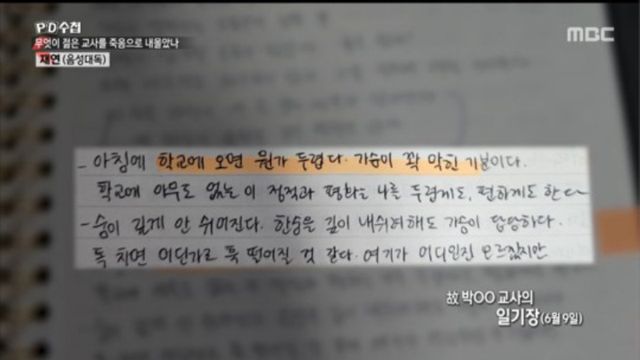 PD수첩
MBC
무엇이 젊은 교사를 죽음으로 내몰았나
재연(음성대독)
- 아침에 학교에 오면 뭔가 두렵다. 가슴이 꽉 막힌 기분이다.
학교에 아무도 없는 이 정적과 평화는 나를 두렵게도, 편하게도 한다
- 숨이 깊게 안 쉬어진다. 한숨을 깊이 내쉬려해도 가슴이 답답하다.
툭 치면 어딘가로 툭 떨어질 것 같다. 여기가 어디인진 모르겠지만
故 박OO 교사의
일기장(6월 9일)